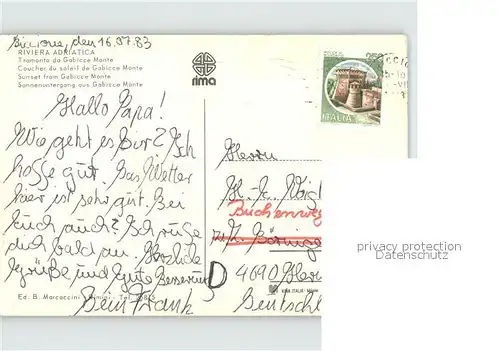 Riccione, den 16.07.83
RIVIERA ADRIATICA
Tramonto da Gabicce Monte
Coucher du soleil de Gabicce Monte
Sunset from Gabicce Monte
Sonnenuntergang aus Gabicce Monte
rima
ITALIA
Hallo Papa!
Wie geht es Dir? Ich
hoffe gut. Das Wetter
hier ist sehr gut. Bei
Euch auch? Ich rufe
dich bald an. Herzliche
Grüße und gute Besserung
Dein Frank
Herrn
H.-K. Voigt
Buchenweg
D
4690 Her
Deutschl
Ed. B. Marcaccini - Rimini - Tel.
privacy protection
Datenschutz